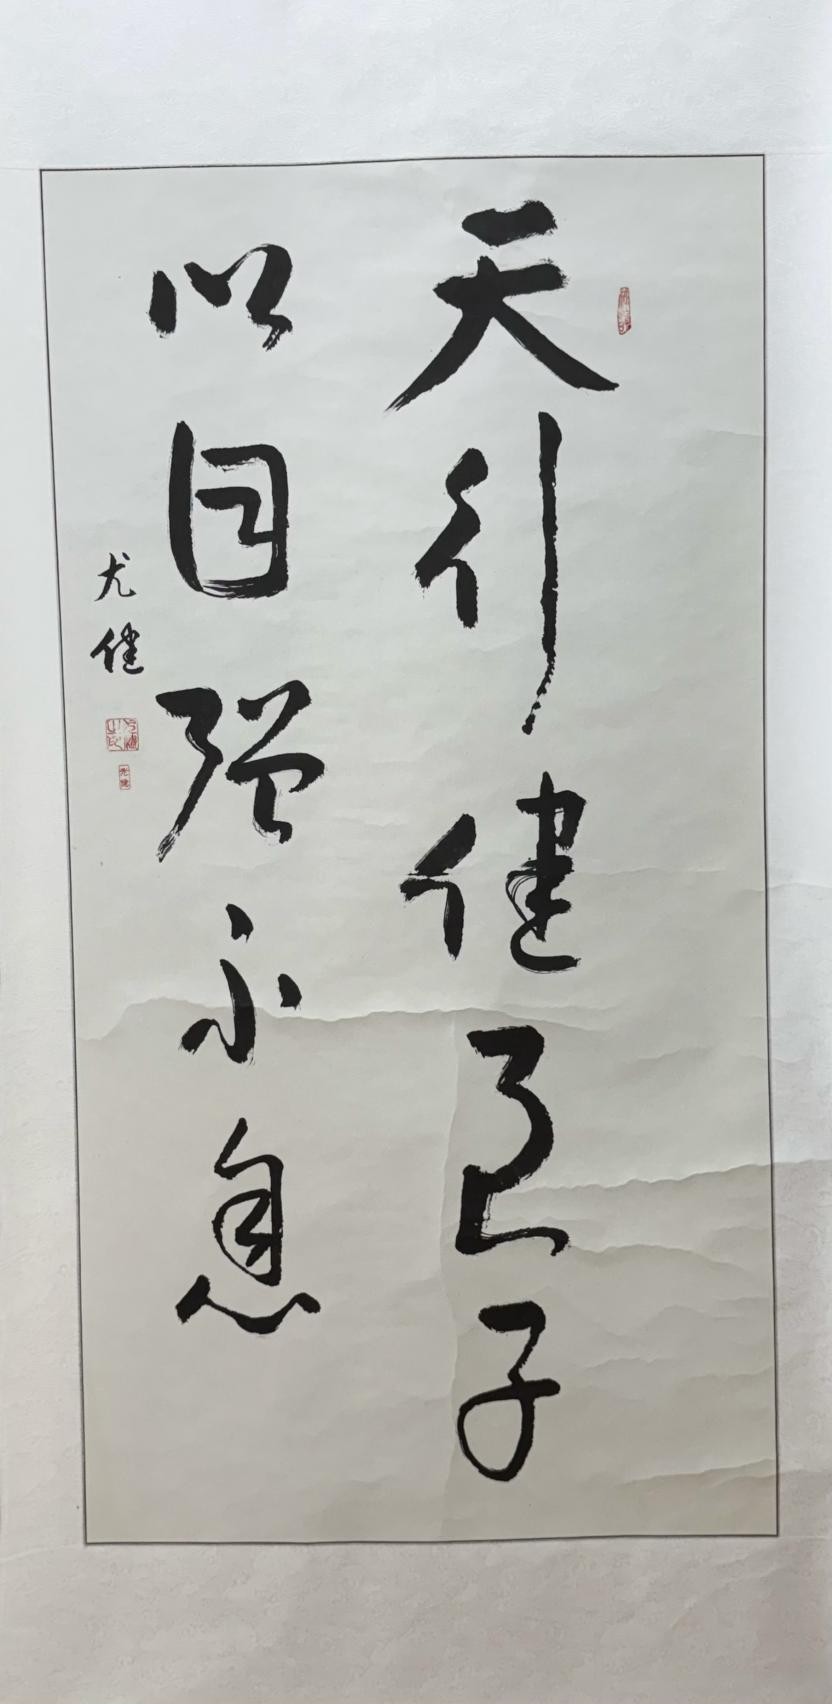 天行健君子
以自强不息
尤健